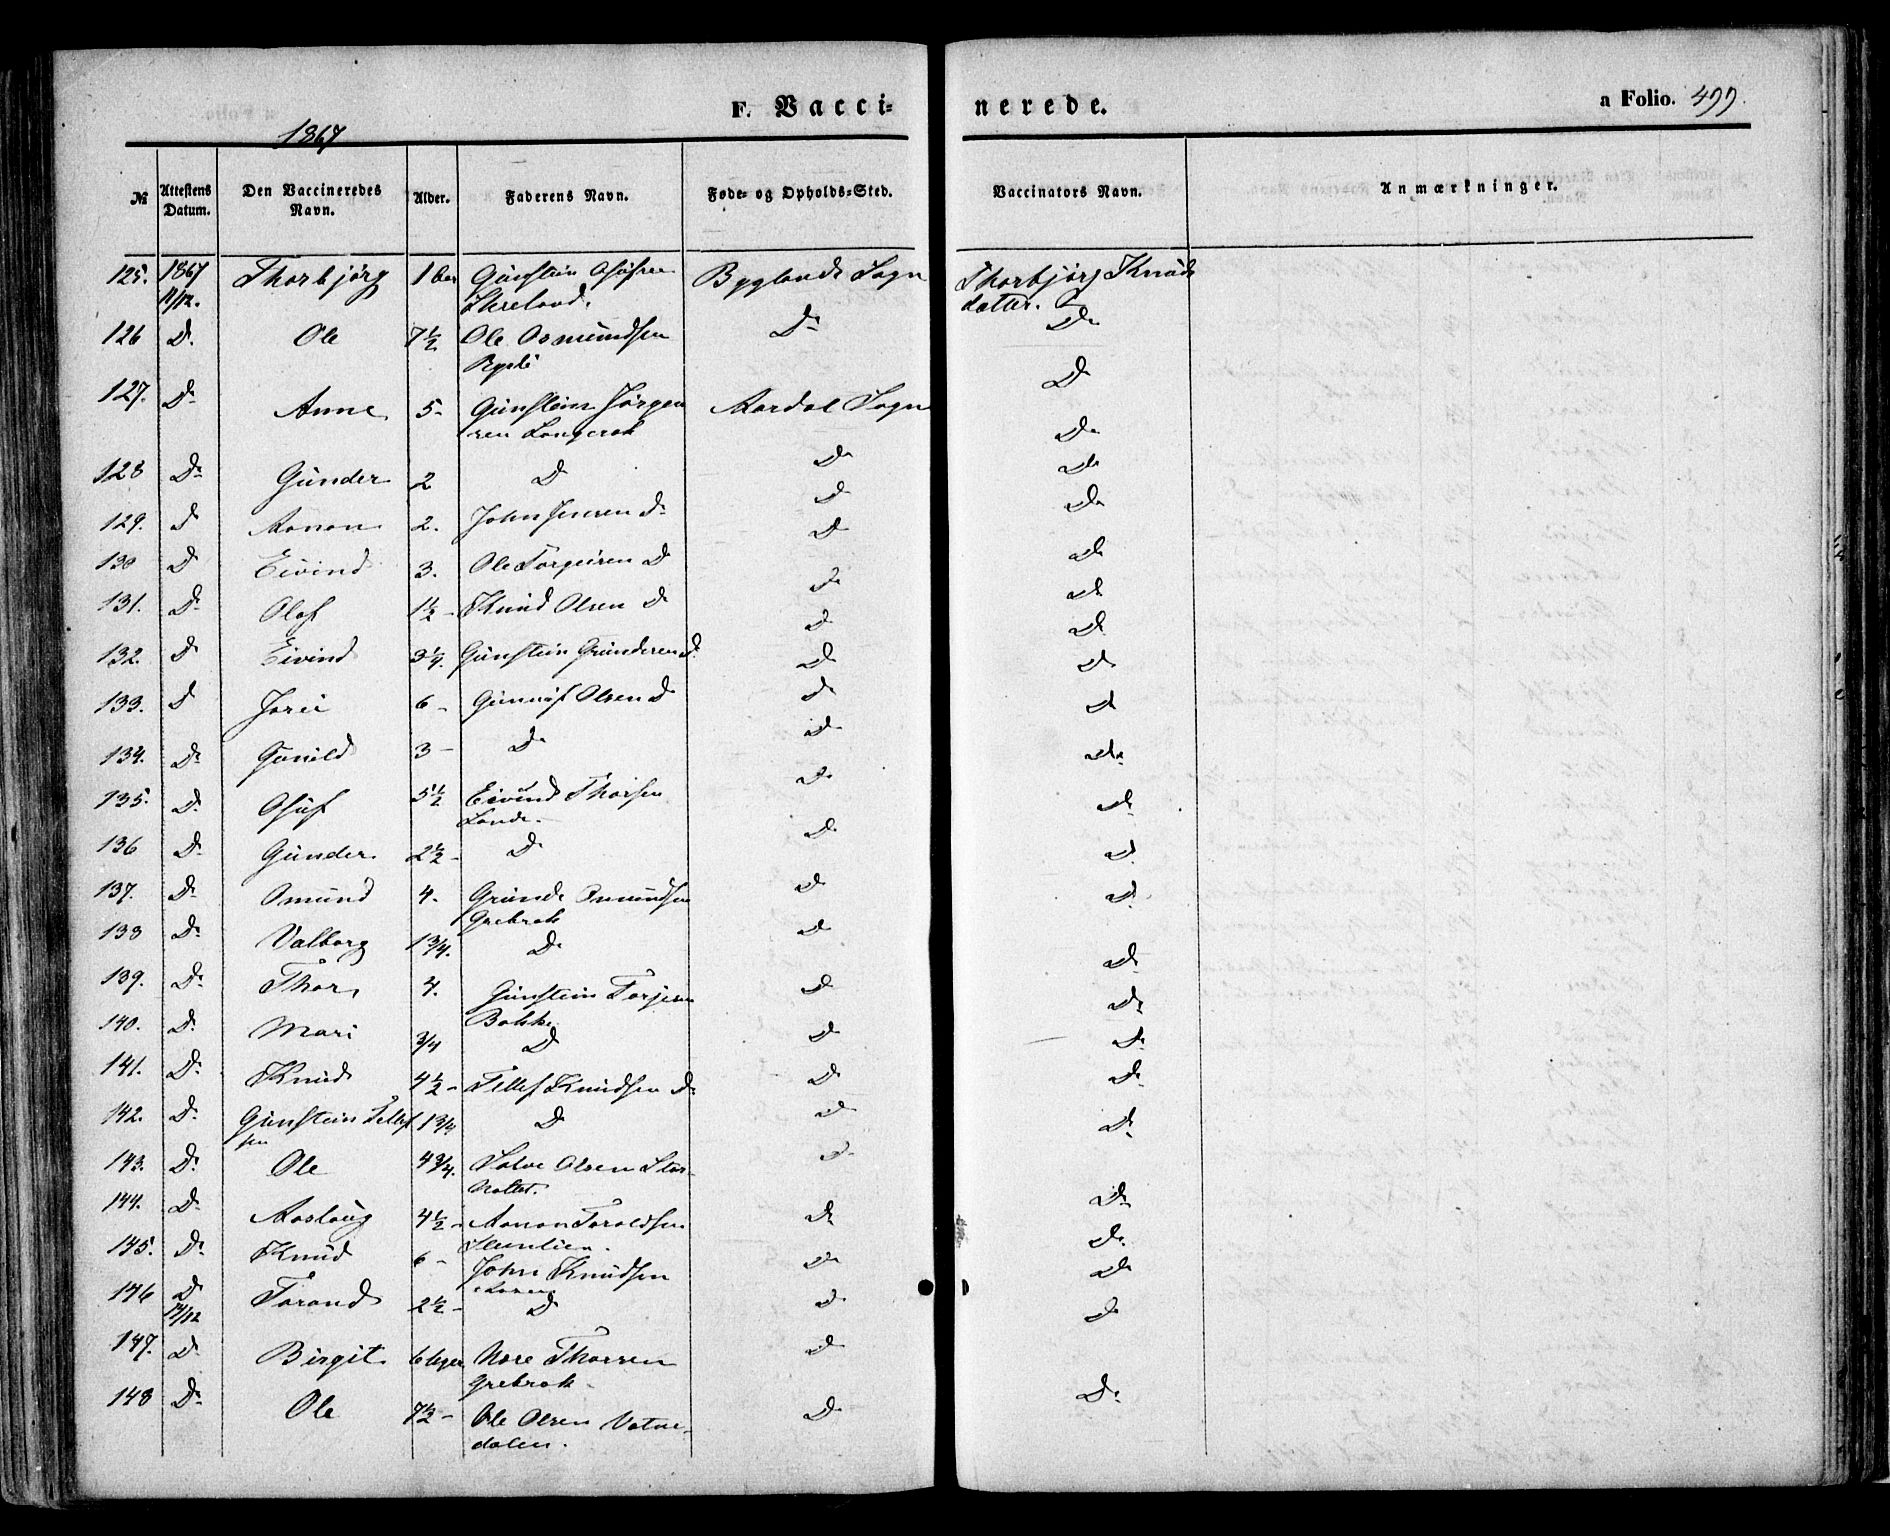 F. Vacci-nerede. a Folio. 499.
1867
№ Attestens Datum. Den Vaccineredes Navn. Alder. Faderens Navn. Føde- og Opholds-Sted. Vaccinators Navn. Anmærkninger.
125. 1867 11/12. Thorbjørg 1 Gunstein Byglands Sogn Thorbjørg Knuds
datter.
126 D. Ole 7½ Ole Osmundsen D. D.
127. D. Anne 5- Gunstein Jørgen Aardal Sogn D.
sen Longerak
128 D. Gunder 2 D D. D.
129. D Aanon 2. John Jensen D. D D.
130 D Eivind 3. Ole D D D.
131. D. Olaf 1½- Knud Olsen D D. D.
132. D Eivind 3¼. Gunstein Gundersen D. D D.
133. D 6- Olsen D D D
134. D. Gunild 3- D. D. D
135. D. Asuf 5½ Eivind Thorsen D. D.
Lande.
136 D. Gunder 2½- D. D. D.
137. D. Osmund 4. Grunde Osmundsen D D
Grebrok
138 D. Valborg 1¾. D. D D.
139. D. Thor 4. Gunstein Torjesen D D.
Bakke
140. D. Mari ¾ D D D.
141. D. Knud 4½- Tellef Knudsen D. D D.
142. D. Gunstein Tellef 1¾ D D D.
sen
143. D. Ole 4¾. Salve Olsen D. D.
144. D. Aaslaug 4½- Aanon Toroldsen D. D.
145. D. Knud 6- John Knudsen D. D.
146 D 14/12 Torand 2½- D D. D.
147. D. Birgit Thorsen D D.
Grebrok
148 D. Ole 7½- Ole Olsen Vatne- D D.
dalen.